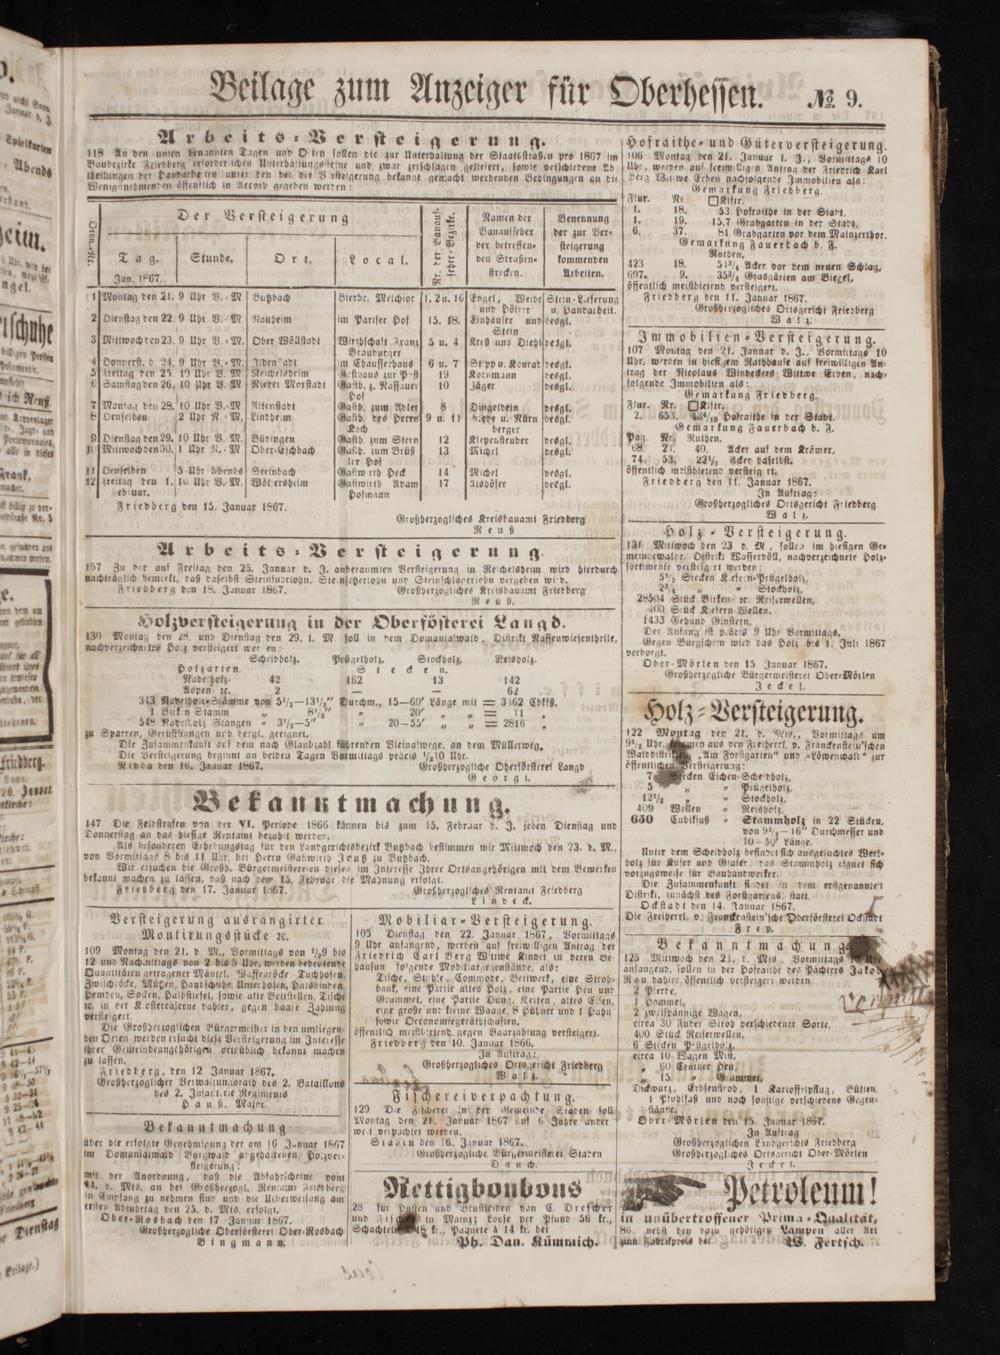 Beilage zum Anzeiger für Oberhessen. No. 9.
Arbeits-Versteigerung.
118 An den unten benannten Tagen und Orten sollen die zur Unterhaltung der Staatsstraßen pro 1867 im
Baubezirke Friedberg erforderlichen Unterhaltungssteine und zwar zerschlagen geliefert, sowie verschiedene Ab
theilungen der Handarbeiten unter den bei der Versteigerung bekannt gemacht werdenden Bedingungen an die
Wenigstnehmenden öffentlich in Accord gegeben werden:
Orrn.-Nr.
Der Versteigerung
Tag. Stunde. Ort. Local.
Jan. 1867.
Nr. der Bauaufseher-Bezirke.
Namen der Bauaufseher der betreffenden Straßenstrecken.
Benennung der zur Versteigerung kommenden Arbeiten.
1 Montag den 21. 9 Uhr V.-M Butzbach Bierbr. Melchior 1. 2 u. 16 Engel, Weide und Hölzer Stein-Lieferung u. Handarbeit.
2 Dienstag den 22. 9 Uhr V.-M Nauheim im Pariser Hof 15. 18. Einhäuser und Stein desgl.
3 Mittwoch den 23. 9 Uhr V.-M Ober Wöllstadt Wirthschaft Franz Brauburger 5 u. 4 Kreß und Diehl desgl.
4 Donnerst. d. 24. 9 Uhr V.-M. Ilbenstadt im Chausseehaus 6 u. 7 Desgl.
5 Freitag den 25. 10 Uhr V.-M Reichelsheim Gasthaus zur Post 19 Kornmann desgl.
6 Samstag den 26. 10 Uhr V.-M Nieder Morstadt Gasth. z. Nassauer Hof 10 Jäger desgl.
7 Montag den 28. 10 Uhr V.-M Altenstadt Gasth. zum Adler 8 Dingeldein desgl.
8 Denselben. 2 Uhr N.-M Lindheim Gasth. des Herrn Koch 9 u. 11 desgl.
9 Dienstag den 29. 10 Uhr V.-M. Büdingen Gasth. zum Stern 12 Klepenstruber desgl.
10 Mittwoch den 30. 1 Uhr N.-M Ober-Eschbach Gasth. zum Brüßler Hof 13 Michel desgl.
11 Denselben 5 Uhr Abends Steinbach Gastwirth Heck 14 Michel desgl.
12 Freitag den 1. Februar. 10 Uhr V.-M. Wölfersheim Gastwirth Adam Hofmann 17 Alshöfer desgl.
Friedberg den 15. Januar 1867.
Großherzogliches Kreisbauamt Friedberg
Reuß
Arbeits-Versteigerung.
157 Zu der auf Freitag den 25. Januar d. J. anberaumten Versteigerung in Reichelsheim wird hierdurch
nachträglich bemerkt, daß daselbst Steinfuhrlohn, Steinsetzerlohn und Steinschlägerlohn vergeben wird.
Friedberg den 18. Januar 1867. Großherzogliches Kreisbauamt Friedberg
Reuß.
Holzversteigerung in der Oberförsterei Langd.
130 Montag den 28. und Dienstag den 29. l. M. soll in dem Domanialwald, Distrikt Nassenwiesentheile,
nachverzeichnetes Holz versteigert werden:
Scheidholz. Prügelholz. Stockholz. Reisholz.
Holzarten. Stecken.
Nadelholz 42 162 13 142
Aspen ꝛc. 2 — — 62
343 Nadelholz-Stämme von 5½—13½" Durchm., 15—60' Länge mit = 3462 Cbkfß.
1 Birken Stamm " 8½" " 20' " " = 11 "
548 Nadelholz Stangen " 3½—5" " 20—55' " " = 2816 "
zu Sparren, Gerüststangen und dergl. geeignet.
Die Zusammenkunft ist auf dem nach Glaubzahl führenden Vicinalwege, an dem Müllerweg.
Die Versteigerung beginnt an beiden Tagen Vormittags präcis ½10 Uhr.
Nidda den 16. Januar 1867. Großherzogliche Oberförsterei Langd
Georgi.
Bekanntmachung.
147 Die Feldstrafen von der VI. Periode 1866 können bis zum 15. Februar d. J. jeden Dienstag und
Donnerstag an das hiesige Rentamt bezahlt werden.
Als besonderen Erhebungstag für den Landgerichtsbezirk Butzbach bestimmen wir Mittwoch den 23. d. M.,
von Vormittags 8 bis 11 Uhr, bei Herrn Gastwirth Joutz zu Butzbach.
Wir ersuchen die Großh. Bürgermeistereien dieses im Interesse Ihrer Ortsangehörigen mit dem Bemerken
bekannt machen zu lassen, daß nach dem 15. Februar die Mahnung erfolgt.
Friedberg den 17. Januar 1867. Großherzogliches Rentamt Friedberg
Lindeck.
Versteigerung ausrangirter
Montirungsstücke ꝛc.
109 Montag den 21. d. M., Vormittags von ½9 bis
12 und Nachmittags von 2 bis 5 Uhr, werden bedeutende
Quantitäten getragener Mäntel, Waffenröcke, Tuchhosen,
Zwilchröcke, Mützen, Handschuhe, Unterhosen, Halsbinden,
Hemden, Sohlen, Halbstiefel, sowie alte Bettstellen, Tische
ꝛc. in der Klostercaserne dahier, gegen baare Zahlung
versteigert.
Die Großherzoglichen Bürgermeister in den umliegen-
den Orten werden ersucht diese Versteigerung im Interesse
ihrer Gemeindeangehörigen ortsüblich bekannt machen
zu lassen.
Friedberg, den 12 Januar 1867.
Großherzoglicher Verwaltungsrath des 2. Bataillons
des 2. Infanterie Regiments
Hauß, Major.
Bekanntmachung
über die erfolgte Genehmigung der am 16 Januar 1867
im Domanialwald Burgwald abgehaltenen Holzver-
steigerung:
mit der Anordnung, daß die Abfuhrscheine vom
24. d. Mts. an bei Großherzogl. Rentamt Friedberg
in Empfang zu nehmen sind und die Ueberweisung am
ersten Abfuhrtag den 25. d. Mts. erfolgt.
Ober-Rosbach den 17 Januar 1867.
Großherzogliche Oberförsterei Ober-Rosbach
Bingmann.
Mobiliar-Versteigerung.
105 Dienstag den 22. Januar 1867, Vormittags
9 Uhr anfangend, werden auf freiwilligen Antrag der
Friedrich Carl Berg Witwe Kinder in deren Be-
hausung folgende Mobiliargegenstände, als:
Tische, Stühle, Commode, Bettwerk, eine Stroh-
bank, eine Partie altes Holz, eine Partie Heu und
Grummet, eine Partie Dung, Ketten, altes Eisen,
eine große und kleine Waage, 8 Hühner und 1 Hahn
sowie Oeconomiegeräthschaften,
öffentlich meistbietend gegen Baarzahlung versteigert.
Friedberg den 10. Januar 1866.
In Auftrag:
Großherzogliches Ortsgericht Friedberg
Walz.
Fischereiverpachtung.
129 Die Fischerei in der Gemeinde Staden soll
Montag den 21. Januar 1867 auf 6 Jahre ander
weit verpachtet werden.
Staden den 16. Januar 1867.
Großherzogliche Bürgermeisterei Staden
Dauch.
Rettigbonbons
28 für Husten und Brustleiden von C. Drescher
und Fisch in Mainz; Loose per Pfund 56 kr.,
Schachteln kr., Paquete à 14 kr. bei
Ph. Dan. Kümmich.
Hofraithe- und Güterversteigerung.
106 Montag den 21. Januar l. J., Vormittags 10
Uhr, werden auf freiwilligen Antrag der Friedrich Karl
Berg Witwe Erben nachfolgende Immobilien als:
Gemarkung Friedberg.
Flur. Nr □Klftr.
1. 18. 53 Hofraithe in der Stadt.
1. 19. 15,7 Grabgarten in der Stadt.
6. 37. 81 Grabgarten vor dem Mainzerthor.
Gemarkung Fauerbach b. F.
Ruthen.
423 18. 51¾ Acker vor dem neuen Schlag,
697. 9. 35¾ Grasgärten am Biegel,
öffentlich meistbietend versteigert.
Friedberg den 11. Januar 1867.
Großherzogliches Ortsgericht Friedberg
Walz.
Immobilien-Versteigerung.
107 Montag den 21. Januar d. J., Vormittags 10
Uhr, werden in hiesigem Rathhause auf freiwilligen An-
trag der Nicolaus Windeckers Wittwe Erben, nach-
folgende Immobilien als:
Gemarkung Friedberg.
Flur. Nr. □Klftr.
2. 653. Hofraithe in der Stadt.
Gemarkung Fauerbach b. F.
Pag. Nr. Ruthen.
68. 21. 40. Acker auf dem Krämer,
74. 53. 22½ Acker daselbst.
öffentlich meistbietend versteigert.
Friedberg den 11. Januar 1867.
In Auftrag:
Großherzogliches Ortsgericht Friedberg
Walz.
Holz-Versteigerung.
131 Mittwoch den 23 d. M., sollen im hiesigen Ge-
meindewald, Distrikt Wasserhöll, nachverzeichnete Holz-
sortimente versteigert werden:
5½ Stecken Kiefern-Prügelholz,
2¾ " " Stockholz,
28504 Stück Birken- ꝛc. Reiserwellen,
400 Stück Kiefern Wellen.
1433 Gebund Ginstern.
Der Anfang ist präcis 9 Uhr Vormittags.
Gegen Bürgschein wird das Holz bis 1. Juli 1867
verborgt.
Ober-Mörlen den 15. Januar 1867.
Großherzogliche Bürgermeisterei Ober-Mörlen
Jeckel.
Holz-Versteigerung.
122 Montag den 21. d. Mts., Vormittags um
9½ Uhr, kommen aus den Freiherrl. v. Franckenstein'schen
Walddistrikten „Am Forstgarten" und „Löwenwalt" zur
öffentlichen Versteigerung:
7 Stecken Eichen-Scheidholz,
5 " " Prügelholz,
12½ " " Stockholz,
409 Wellen " Reisholz,
650 Cubikfuß " Stammholz in 22 Stücken,
von 9½—16" Durchmesser und
10—50' Länge.
Unter dem Scheidholz befindet sich ausgesuchtes Werk-
holz für Küfer und Glaser, das Stammholz eignet sich
vorzugsweise für Bauhandwerker.
Die Zusammenkunft findet in dem erstgenannten
Distrikt, zunächst des Forstgartens, statt.
Ockstadt den 14. Januar 1867.
Die Freiherrl. v. Franckenstein'sche Oberförsterei Ockstadt
Frey.
Bekanntmachung
125 Mittwoch den 23. d. Mts., Vormittags 10 Uhr
anfangend, sollen in der Hofraithe des Pächters Jakob
Rau dahier öffentlich versteigert werden
2 Pferde,
1 Hammel,
2 zweispännige Wagen,
circa 30 Fuder Stroh verschiedener Sorte,
400 Stück Reiserwellen,
6 Stecken Prügelholz,
circa 10 Wagen Mist,
" 60 Centner Heu,
" 15 " Grummet,
Dickwurz, Erbsenstroh, 1 Kartoffelpflug, Bütten,
1 Pfuhlfaß und noch sonstige verschiedene Gegen-
stände.
Ober-Mörlen den 15. Januar 1867.
In Auftrag
Großherzoglichen Landgerichts Friedberg
Großherzogliches Ortsgericht Ober-Mörlen
Jeckel.
Petroleum!
in unübertroffener Prima-Qualität,
86. nebst den dazu gehörigen Lampen aller Art
zum Fabrikpreis bei W. Fertsch.